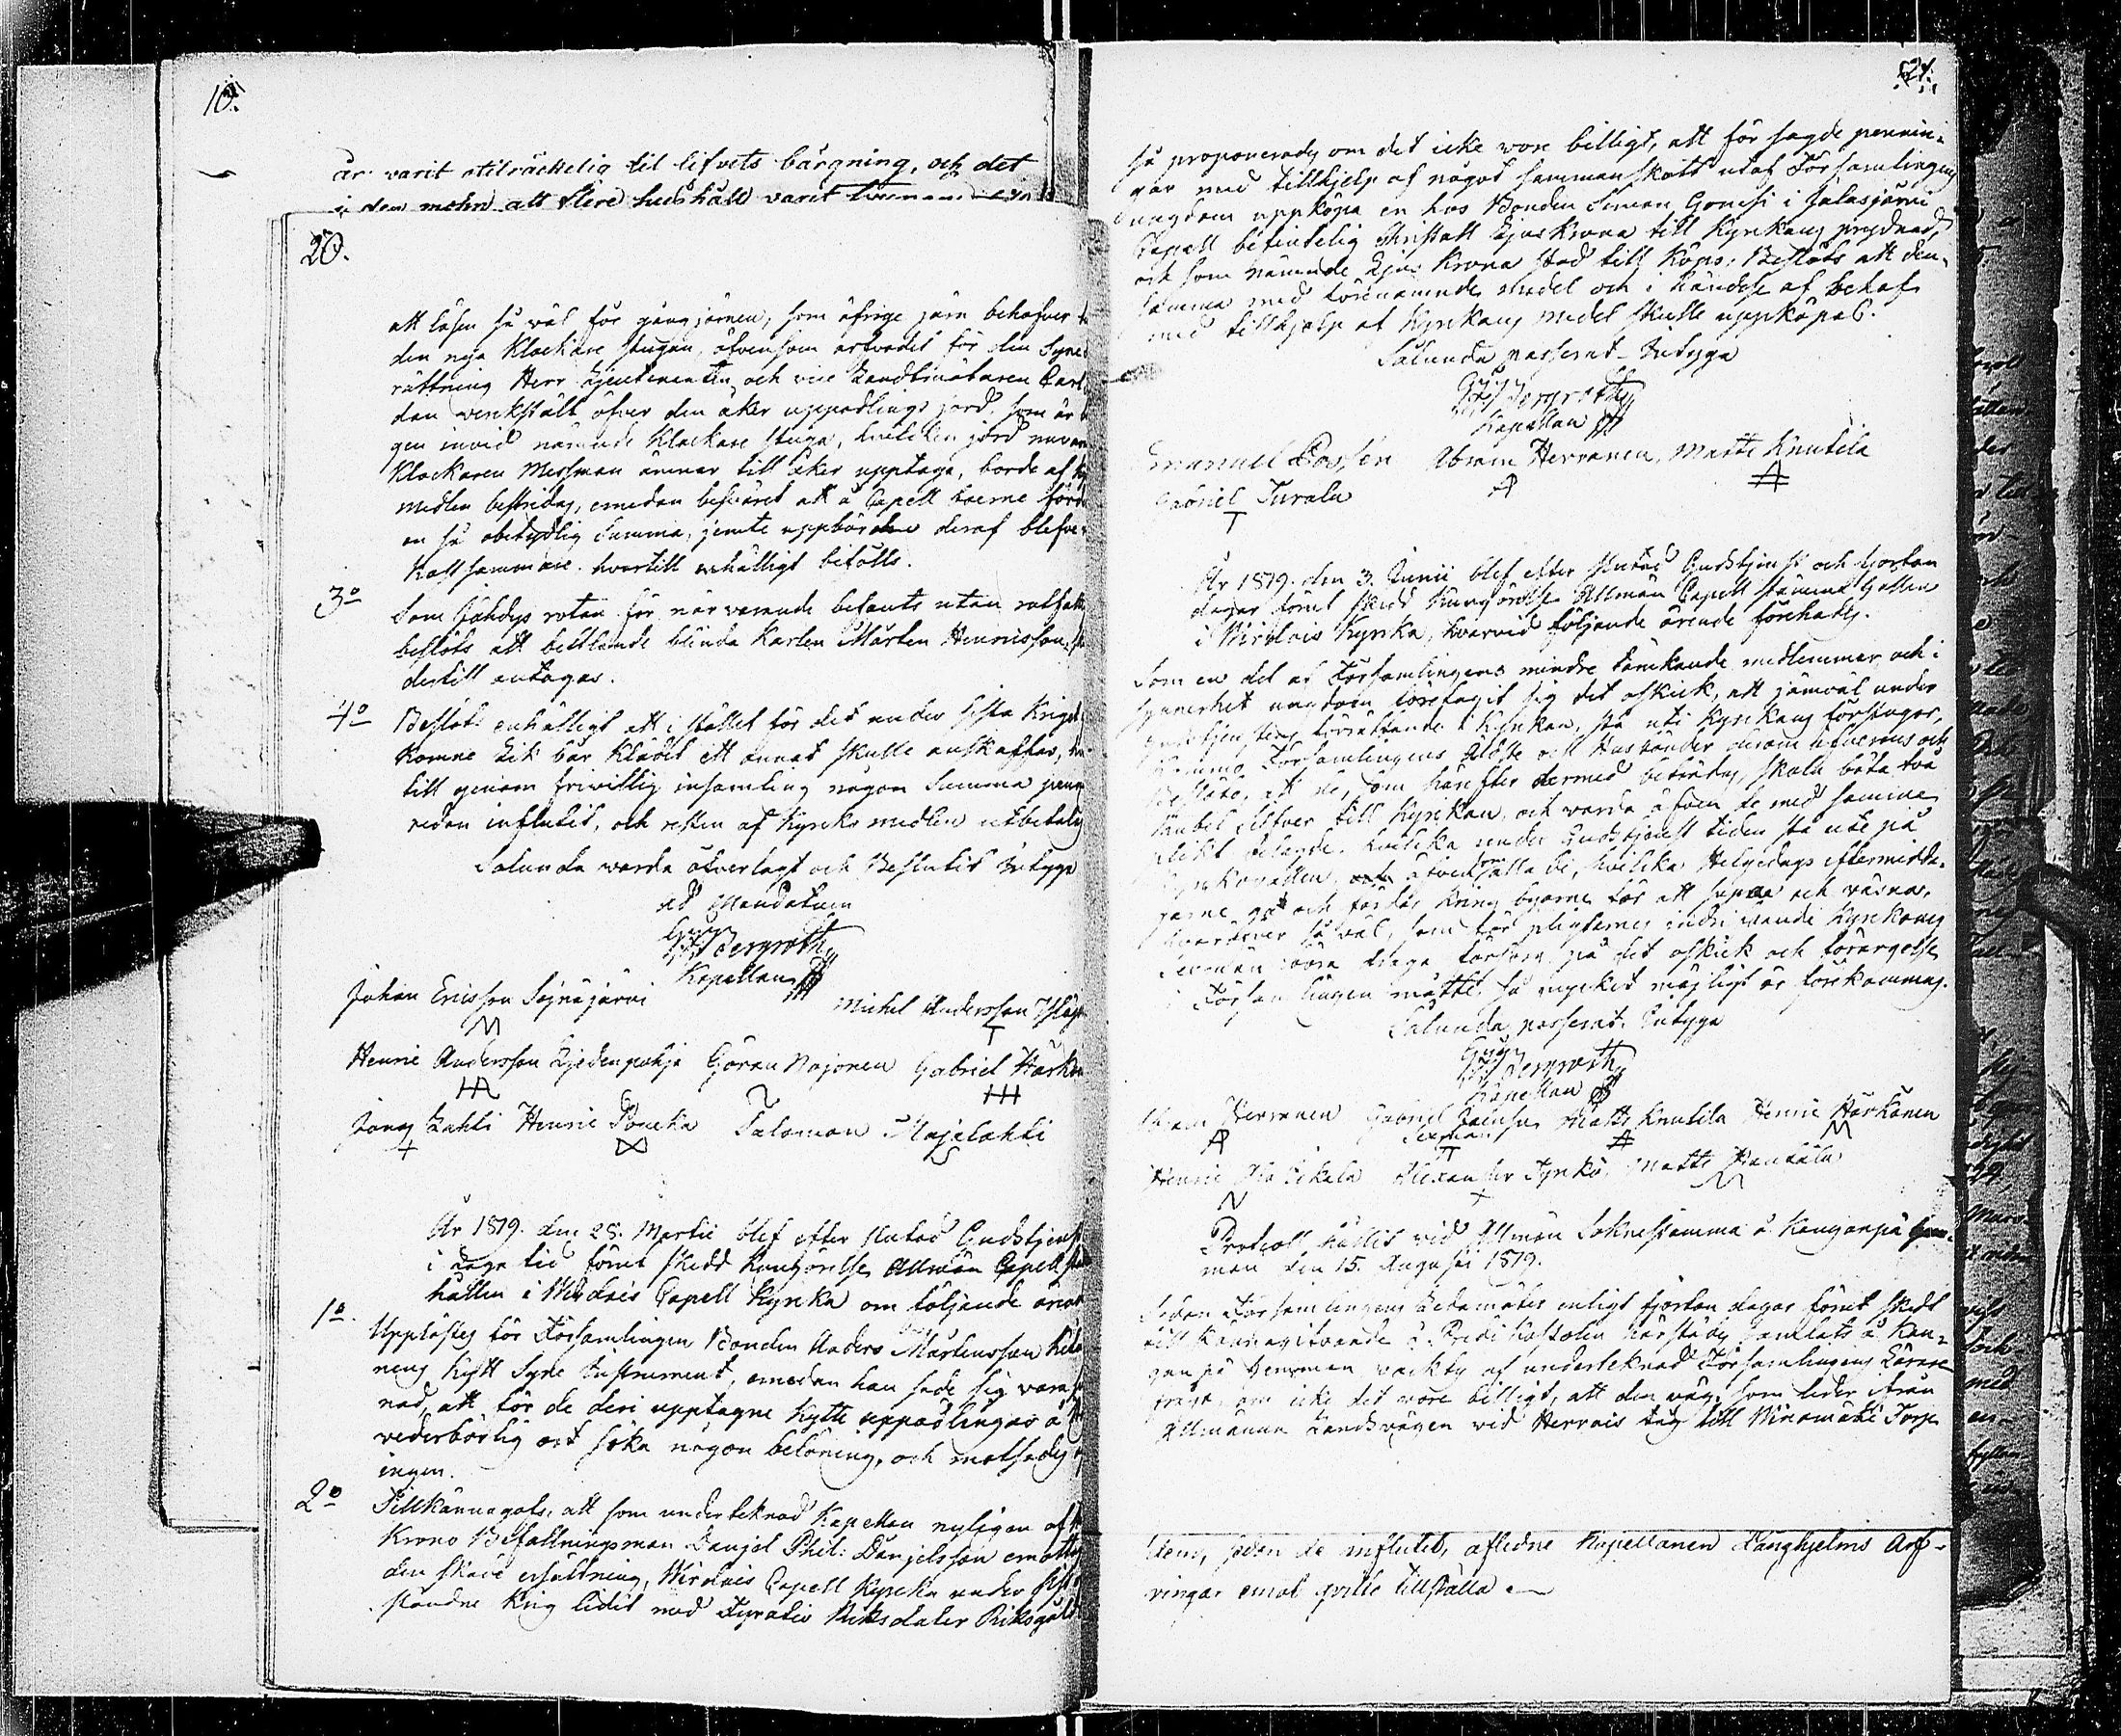 10.
år varit otilräckelig til lifvets bärgning, och det
i den mohn att flere hushåll varit
20.
att låsen så wäl för gångjärnen, som öfrige järn behofver
den nya Klockare stugan, äfvensom arfvodet för den Syne
rättning Herr Lieutenanten och vice Landtmätaren Carl
den verkstält öfver den åker uppodlings jord, som är
gen invid nämnde Klockare stuga, hvilcken jord
Klockaren Messman ämnar till åker upptaga, borde af
medlen bestridas, emedan besväret att å Capell boerne förde
en så obetydlig Summa, jemte uppbörden deraf blefve
kostsammare. hvartill enhälligt bifölls.
3o Som Jähdys rotan för närvarande befants utan rotfattig
beslöts att bettlande blinda Karlen Mårten Henricsson
dertill antages.
4o Beslöts enhälligt att i stället för det under sista Kriget
komne Lik bår klädet ett annat skulle anskaffas,
till genom frivillig insamling någon Summa
redan influtit, och resten af Kyrko medlen utbetalas
Sålunda warda öfverlagt och Beslutit Intyga
ad Mandatum
Bergroth
Kapellan
Johan Ericsson Sejnäjärvi Michel Andersson
Henric Andersson Liedenpohja Göran Najonen Gabriel Härkö
Jonas Lahti Henric Poucka Salomon Majalahti
År 1819. den 28. Martii blef efter slutad Gudstjenst
i laga tid förut skedd Kungörelse Allmän Capell
hållen i Wirdois Capell Kyrka om följande
1o. Upplästes för Församlingen Bonden Anders Mårtensson
nens Kytt Syne Instrument, emedan han sade sig vara
nad, att för de deri upptagne Kytte uppodlingar å
vederbörlig ort söka någon belöning, och motsades
ingen.
2o Tillkännagafs, att som undertecknad Kapellan nyligen af
Krono Befallningsman Danjel Phil: Danjelsson emottagit
den skade ersättning, Wirdois Capell Kyrcka under
ståndne Krig lidit med Fyratio Riksdaler Riksgälds
21.
så proponerades om det icke vore billigt, att för sagde pennin-
gar med tillhjelp af något sammanskott utaf Församlingens
ungdom uppköpa en hos Bonden Simon Gonsi i Jalasjärvi
Capell befintelig Christall Ljuskrona till Kyrkans prydnad,
och som nämnde Ljus Krona stod till köps: Beslöts att den-
samma med förenämnde medel och i händelse af behof
med tillhjelp af Kyrkans medel skulle uppköpas.
Sålunda passerat Intyga
Bergroth
Kapellan
Emanuel Possén Abram Herranen Matts Knutila
Gabriel Jurala
År 1819. den 3. Junii blef efter slutad Gudstjenst och fjorton
dagar förut skedd Kungörelse Allmän Capell stämma hållen
i Wirdois Kyrka, hvarvid följande ärende förehades.
Som en del af Församlingens mindre tänckande medlemmer och i
synnerhet ungdom företagit sig det oskick, att jämväl under
Gudstjenstens förrättande i Kyrkan, stå uti Kyrkans förstugor,
Församlingens Äldste och Husbönder derom öfverens och
Beslöte, att de, som härefter dermed beträdas, skola böta två
Rubel Silfver till Kyrkan, och warda äfven de med samma
plikt belagde, hvilcka under Gudstjenst tiden stå ute på
Kyrkovallen, äfvensom alla de, hvilcka Helgedags eftermidda-
garne gå och fördas kring byarne för att supa och väsnas,
hvaröfver så väl, som för plickternes indrifvande Kyrkones
Sexmän böra draga försorg, på det oskick och förargelse
i Församlingen måtte så mycket möjligt är förekommas.
Sålunda passerat. Intyga
Bergroth
Kapellan
Abram Herranen Gabriel Sexman Matts Knutila Henric Härkönen
Henric Alexander Tynkö Matts
Protocoll, hållit vid Allmän Sokne stämma å Kanganpä Hem-
man den 15. Augusti 1819.
Sedan Församlingens Ledamöter enligt fjorton dagar förut skedt
tillkännagifvande å Predikostolen härstädes samlats å Kan-
ganpä Hemman väcktes af undertecknad Församlingens Lärare
fråga, om icke det wore billigt, att den väg, som leder ifrån
Allmänna Landsvägen vid Herrais till Wiramäki Torp
dem, sedan de influtit, aflidne Kapellanen Langhjelms Arf-
vingar emot qvitto tillställa.